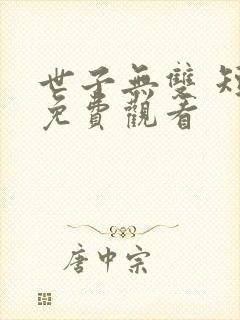 世子無雙 短
免費觀看
唐中宗